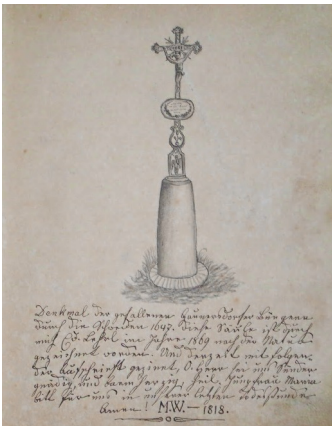 Denkmal der gefallenen Gaunersdorfer Bürger
durch die Schweden 1645. Diese Säule ist durch
im Jahre 1869 nach der Natur
gezeichnet worden. Und derzeit mit folgen-
der Aufschrift geziert, O Herr sei uns Sünder
gnädig und barmherzig heil. Jungfrau Maria
bitt für uns in unserer letzten Todesstunde
Amen! M.W. – 1818.